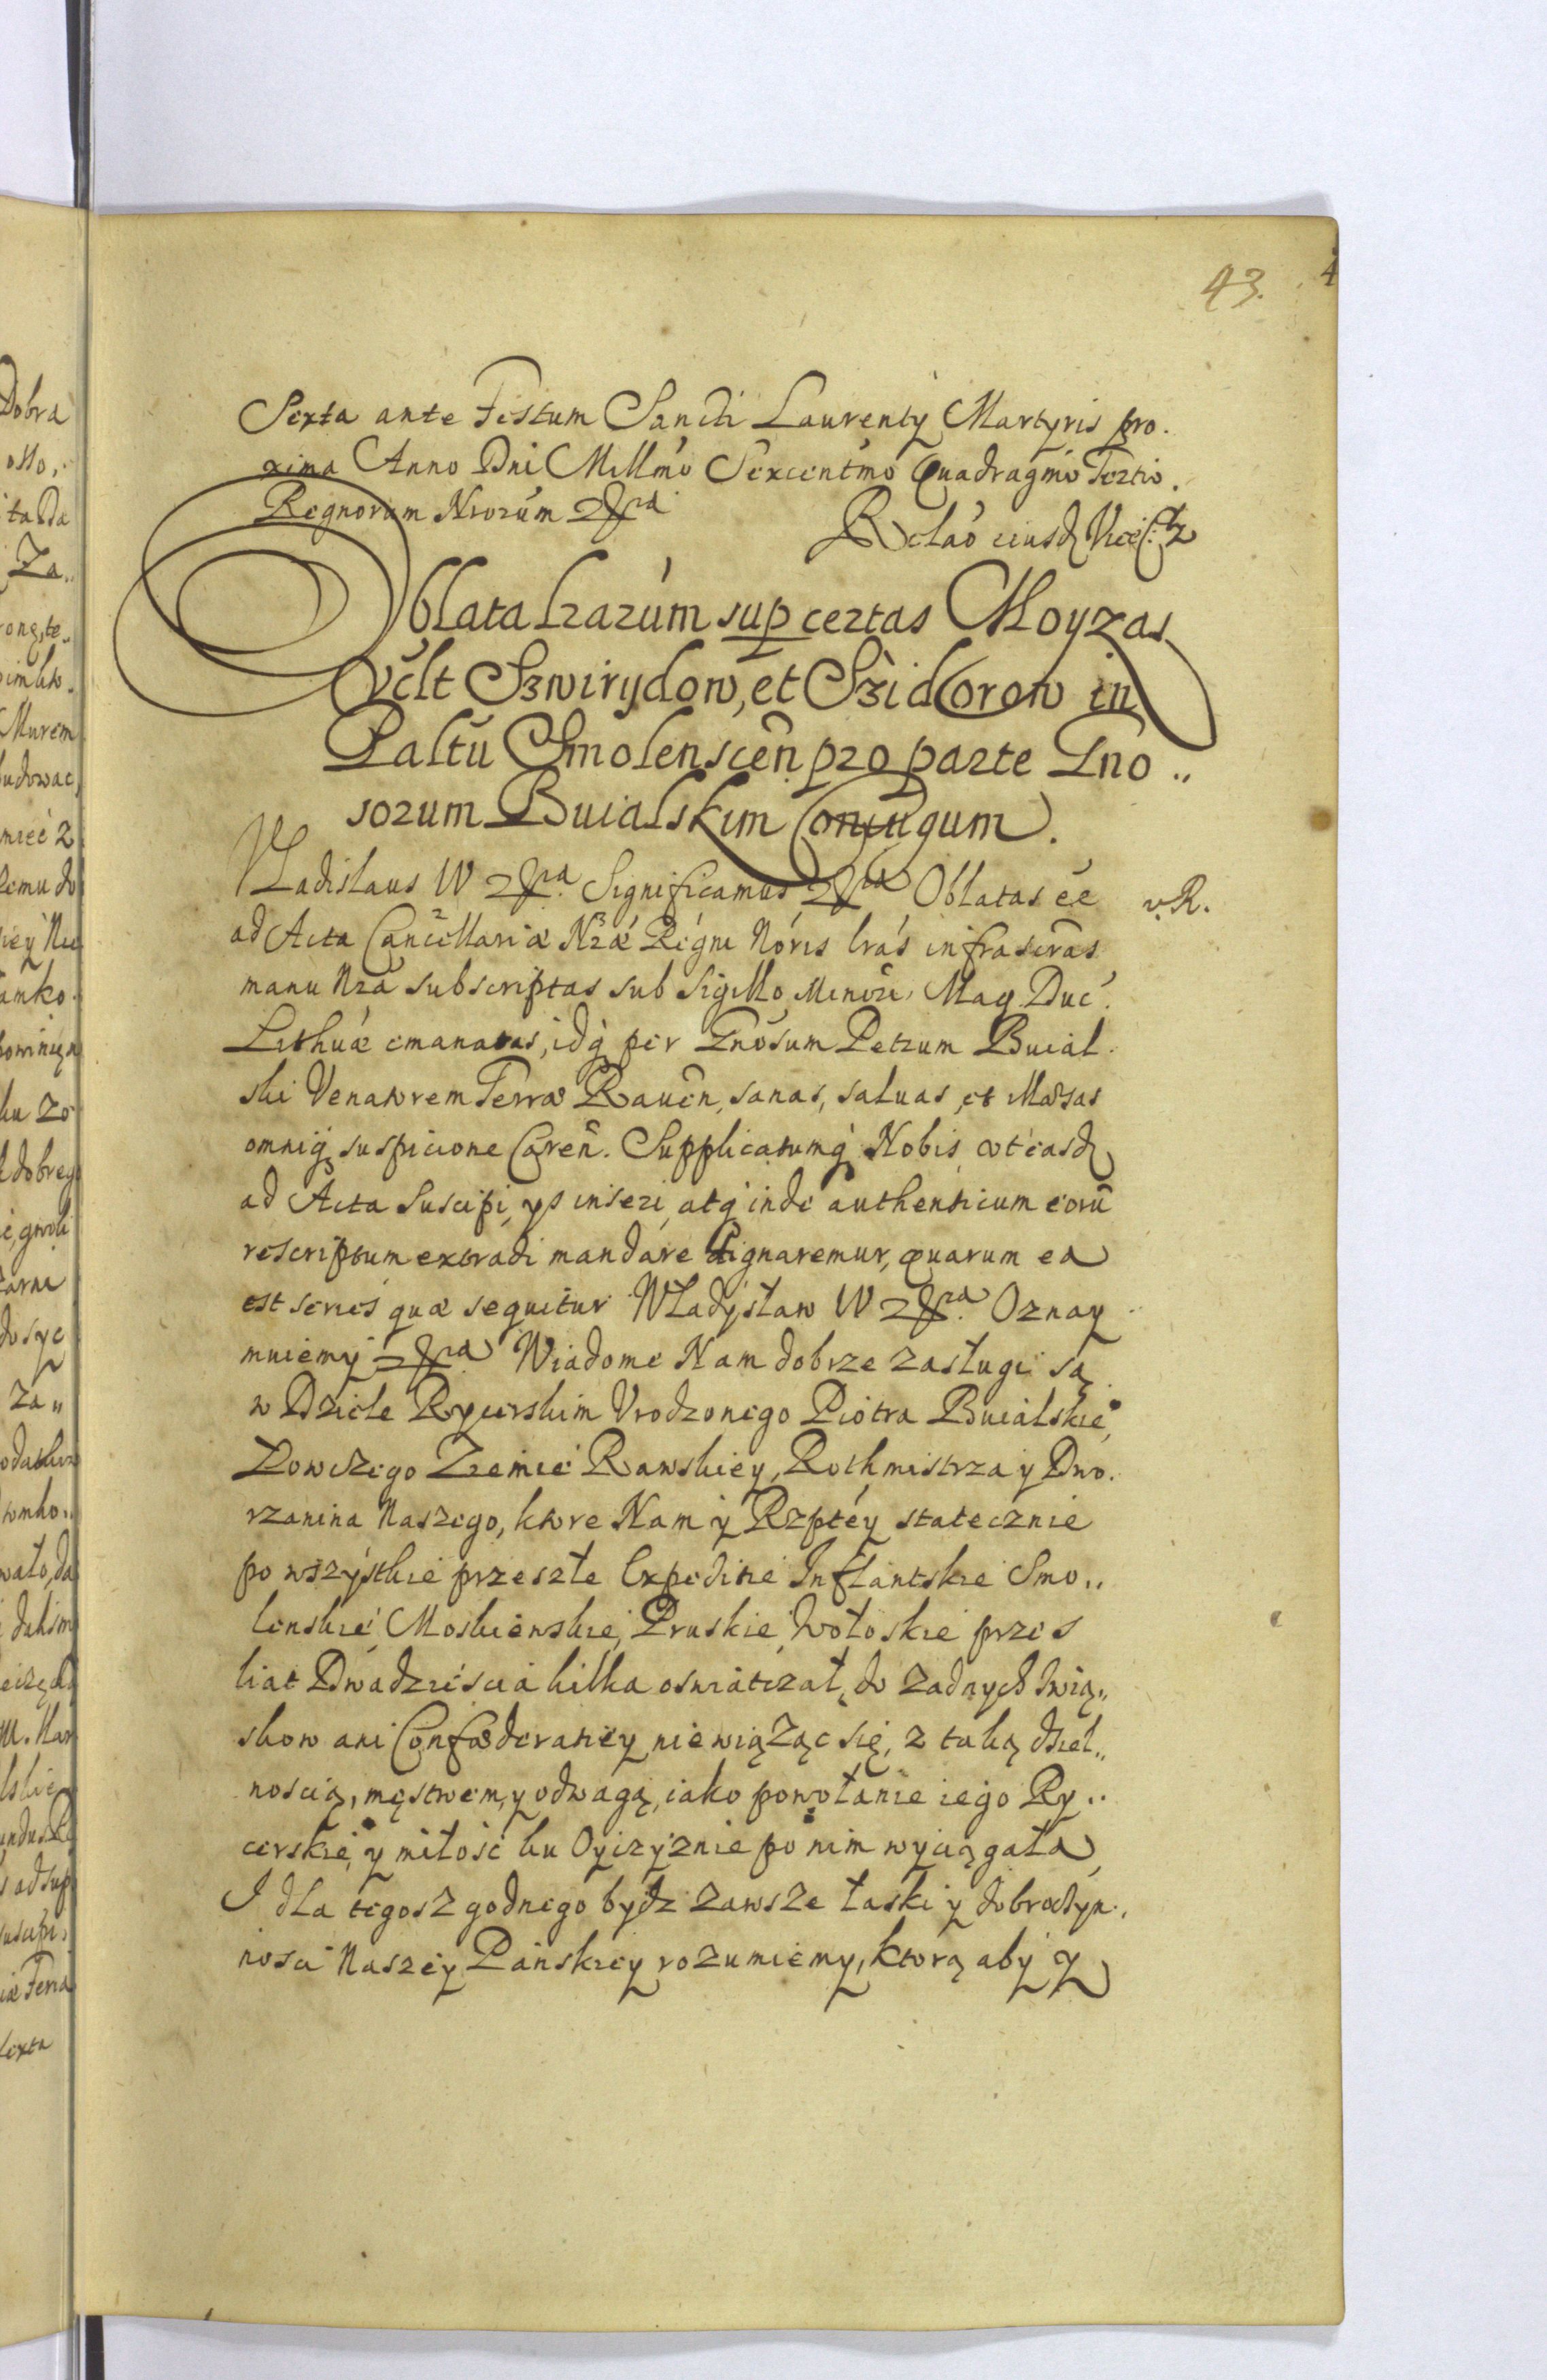 43.
Sexta ante Festum Sancti Laurentÿ Martyris pro.
xima Anno Dni Millmo Sexcentmo Quadragmo Tertio.
Regnorum Nrorum
Relao eiusd
Oblata Lrarum sup certas Moyzas
Vult Szwirydow, et Szidorow in
Paltu Smolenscen pro parte Gno..
sorum Buialskim Conjugum.
Vladislaus W Significamus Oblatas ee
v. R.
ad Acta Cancellariæ Nræ Regni Noris lras infrascras
manu Nra subscriptas sub Sigillo Minori Mag Duc.
Lithuæ emanatas, idq per Gnosum Petrum Buial.
ski Venatorem Terræ Rauen, sanas, saluas, et illæsas
omniq suspicione Caren. Supplicatumq Nobis ut easd
ad Acta Suscipi, ys inseri, atq inde authenticum eoru
rescriptum extradi mandare dignaremur, quarum ea
est series quæ sequitur Wladysław W Oznay
muiemy Wiadome Nam dobrze zasługi są
w Dziele Rycerskim Vrodzonego Piotra Buialskie,
Łowczego Ziemie Rawskiey, Rothmistrza y Dwo.
rzanina Naszego, ktore Nam y Rzptey statecznie
po wszystkie przeszłe Expeditie Inflantskie Smo..
lenskie, Moskiewskie, Pruskie, Wołoskie przes
liat Dwadziescia kilka oswiatczał, do zadnych Zwią..
skow ani Confœderatiey niewiążąc się, z taką dziel..
noscią, męstwem, y odwagą, iako powołanie iego Ry..
cerskie, y miłosc ku Oyczyznie po nim wyciągała,
I dla tegosz godnego bydz zawsze łaski y dobrodyn..
nosci Naszey Panskiey rozumiemy, ktorą aby y